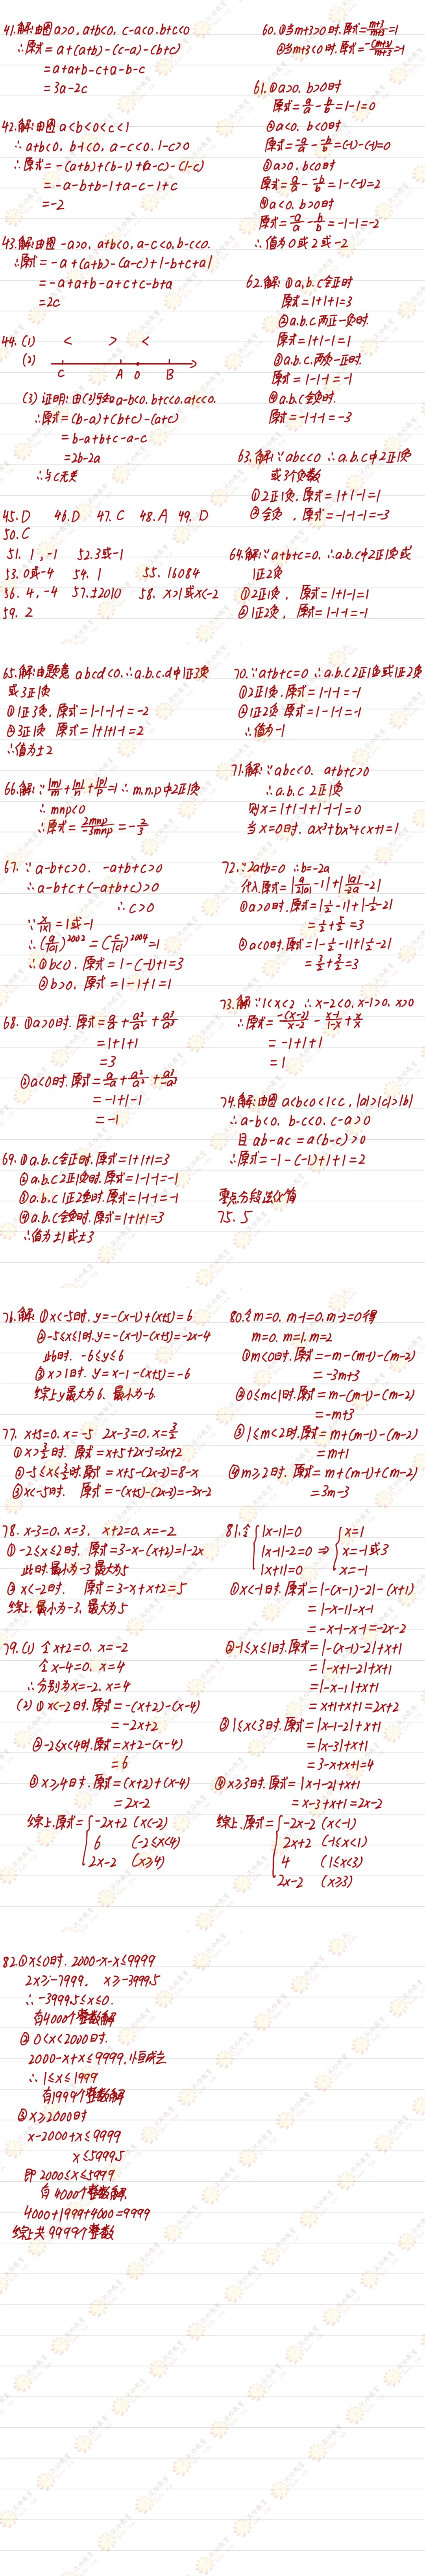 41.解:由图 a>0, a+b<0, c-a<0. b+c<0
∴原式= a+(a+b)-(c-a)-(b+c)
=a+a+b-c+a-b-c
= 3a-2c
42.解:由图 a<b<0<c<1
∴a+b<0, b-1<0, a-c<0. 1-c>0
∴原式= -(a+b)+(b-1)+(a-c)-(1-c)
= -a-b+b-1+a-c-1+c
=-2
43.解:由图 -a>0, a+b<0, a-c<0. b-c<0.
∴原式= -a+(a+b)-(a-c)+|-b+c+a|
= -a+a+b-a+c+c-b+a
=2c
44. (1) < > <
(2) C A O B
(3) 证明: 由(1)知 a-b<0. b+c<0. a+c<0.
∴原式= (b-a)+(b+c)-(a+c)
= b-a+b+c-a-c
=2b-2a
∴与c无关
45. D 46. D 47. C 48. A 49. D
50. C
51. 1, -1 52. 3或-1
53. 0或-4 54. 1 55. 16084
56. 4, -4 57. ±2010 58. x>1或x<-2
59. 2
60. ①当m+3>0时.原式=(m+3)/(m+3)=1
②当m+3<0时.原式=-(m+3)/(m+3)=-1
61. ①a>0. b>0时
原式= a/a - b/b =1-1=0
②a<0. b<0时
原式= -a/a - -b/b =(-1)-(-1)=0
③a>0, b<0时
原式= a/a - -b/b = 1-(-1)=2
④a<0. b>0时
原式= -a/a - b/b = -1-1=-2
∴值为0或2或-2
62.解: ①a.b.c全正时
原式=1+1+1=3
②a.b.c两正一负时.
原式= 1+1-1=1
③a.b.c.两负一正时.
原式= 1-1-1=-1
④a.b.c全负时.
原式= -1-1-1=-3
63.解:∵abc<0 ∴a.b.c中2正1负
或3个负数
①2正1负, 原式= 1+1-1=1
②全负, 原式= -1-1-1=-3
64.解:∵a+b+c=0. ∴a.b.c中2正1负或
1正2负
①2正1负, 原式= 1+1-1=1
②1正2负, 原式= 1-1-1=-1
65.解:由题意 abcd<0. ∴a.b.c.d中1正3负
或3正1负
①1正3负, 原式= 1-1-1-1=-2
②3正1负 原式= 1+1+1-1=2
∴值为±2
66.解:∵|m|/m+|n|/n+|p|/p=1 ∴m.n.p中2正1负
∴mnp<0
∴原式= 2mnp/-3mnp =-2/3
67. ∵a-b+c>0. -a+b+c>0
∴a-b+c+(-a+b+c)>0
∴c>0
∵x/|x|=1或-1
∴(a/|a|)^2002=(c/|c|)^2004=1
∴①b<0, 原式= 1-(-1)+1=3
②b>0, 原式= 1-1+1=1
68. ①a>0时.原式= a/a + a²/a² + a³/a³
= 1+1+1
=3
②a<0时.原式= a/-a + a²/a² + a³/-a³
= -1+1-1
= -1
69. ①a.b.c全正时.原式= 1+1+1=3
②a.b.c 2正1负时.原式= 1-1-1=-1
③a.b.c 1正2负时.原式= 1-1-1=-1
④a.b.c全负时.原式= 1+1+1=3
∴值为±1或±3
70. ∵a+b+c=0 ∴a.b.c 2正1负或1正2负
①2正1负.原式= 1-1-1=-1
②1正2负 原式= 1-1-1=-1
∴值为-1
71.解:∵abc<0. a+b+c>0
∴a.b.c 2正1负
则x=1+1-1+1-1-1=0
当x=0时. ax³+bx²+cx+1=1
72. ∵2a+b=0 ∴b=-2a
代入.原式= |a/2|a| -1|+| |a|/-2a -2|
①a>0时.原式= |1/2-1|+|-1/2-2|
= 1/2+5/2=3
②a<0时.原式= |-1/2-1|+|1/2-2|
= 3/2+3/2=3
73.解:∵1<x<2 ∴x-2<0, x-1>0, x>0
∴原式= -(x-2)/(x-2) - (x-1)/(1-x) + x/x
= -1+1+1
= 1
74.解:由图 a<b<0<1<c, |a|>|c|>|b|
∴a-b<0. b-c<0. c-a>0
且 ab-ac=a(b-c)>0
∴原式= -1-(-1)+1+1=2
零点分段法化简
75. 5
76.解: ①x<-5时.y=-(x-1)+(x+5)=6
②-5≤x≤1时,y=-(x-1)-(x+5)=-2x-4
此时. -6≤y≤6
③x>1时. y=x-1-(x+5)=-6
综上y最大为6. 最小为-6.
77. x+5=0. x=-5 2x-3=0. x=3/2
①x>3/2时. 原式= x+5+2x-3=3x+2
②-5≤x≤3/2时.原式= x+5-(2x-3)=8-x
③x<-5时. 原式= -(x+5)-(2x-3)=-3x-2
78. x-3=0. x=3. x+2=0. x=-2
①-2≤x≤2时. 原式=3-x-(x+2)=1-2x
此时.最小为-3 最大为5
②x<-2时. 原式= 3-x+x+2=5
综上.最小为-3. 最大为5
79. (1) 令x+2=0. x=-2
令x-4=0. x=4
∴分别为x=-2. x=4
(2) ①x<-2时.原式= -(x+2)-(x-4)
= -2x+2
②-2≤x<4时.原式= x+2-(x-4)
= 6
③x≥4时. 原式= (x+2)+(x-4)
= 2x-2
综上.原式= { -2x+2 (x<-2)
6 (-2≤x<4)
2x-2 (x≥4)
80. 令m=0. m-1=0, m-2=0得
m=0. m=1, m=2
①m<0时. 原式= -m-(m-1)-(m-2)
= -3m+3
②0≤m<1时.原式= m-(m-1)-(m-2)
=-m+3
③1≤m<2时.原式= m+(m-1)-(m-2)
=m+1
④m≥2时. 原式= m+(m-1)+(m-2)
= 3m-3
81. 令 { |x-1|=0 { x=1
|x-1|-2=0 ⇒ x=-1或3
|x+1|=0 x=-1
①x<-1时.原式= |-(x-1)-2|-(x+1)
= |-x-1|-x-1
= -x-1-x-1=-2x-2
②-1≤x≤1时.原式= |-(x-1)-2|+x+1
= |-x+1-2|+x+1
=|-x-1|+x+1
= x+1+x+1=2x+2
③1≤x<3时.原式= |x-1-2|+x+1
= |x-3|+x+1
= 3-x+x+1=4
④x≥3时.原式= |x-1-2|+x+1
= x-3+x+1=2x-2
综上.原式= { -2x-2 (x<-1)
2x+2 (-1≤x<1)
4 (1≤x<3)
2x-2 (x≥3)
82. ①x≤0时. 2000-x-x≤9999
2x≥-7999. x≥-3999.5
∴-3999.5≤x≤0.
有4000个整数解
②0<x<2000时.
2000-x+x≤9999, 恒成立
∴1≤x≤1999
有1999个整数解
③x≥2000时
x-2000+x≤9999
x≤5999.5
即2000≤x≤5999
有4000个整数解.
4000+1999+4000=9999
综上共9999个整数